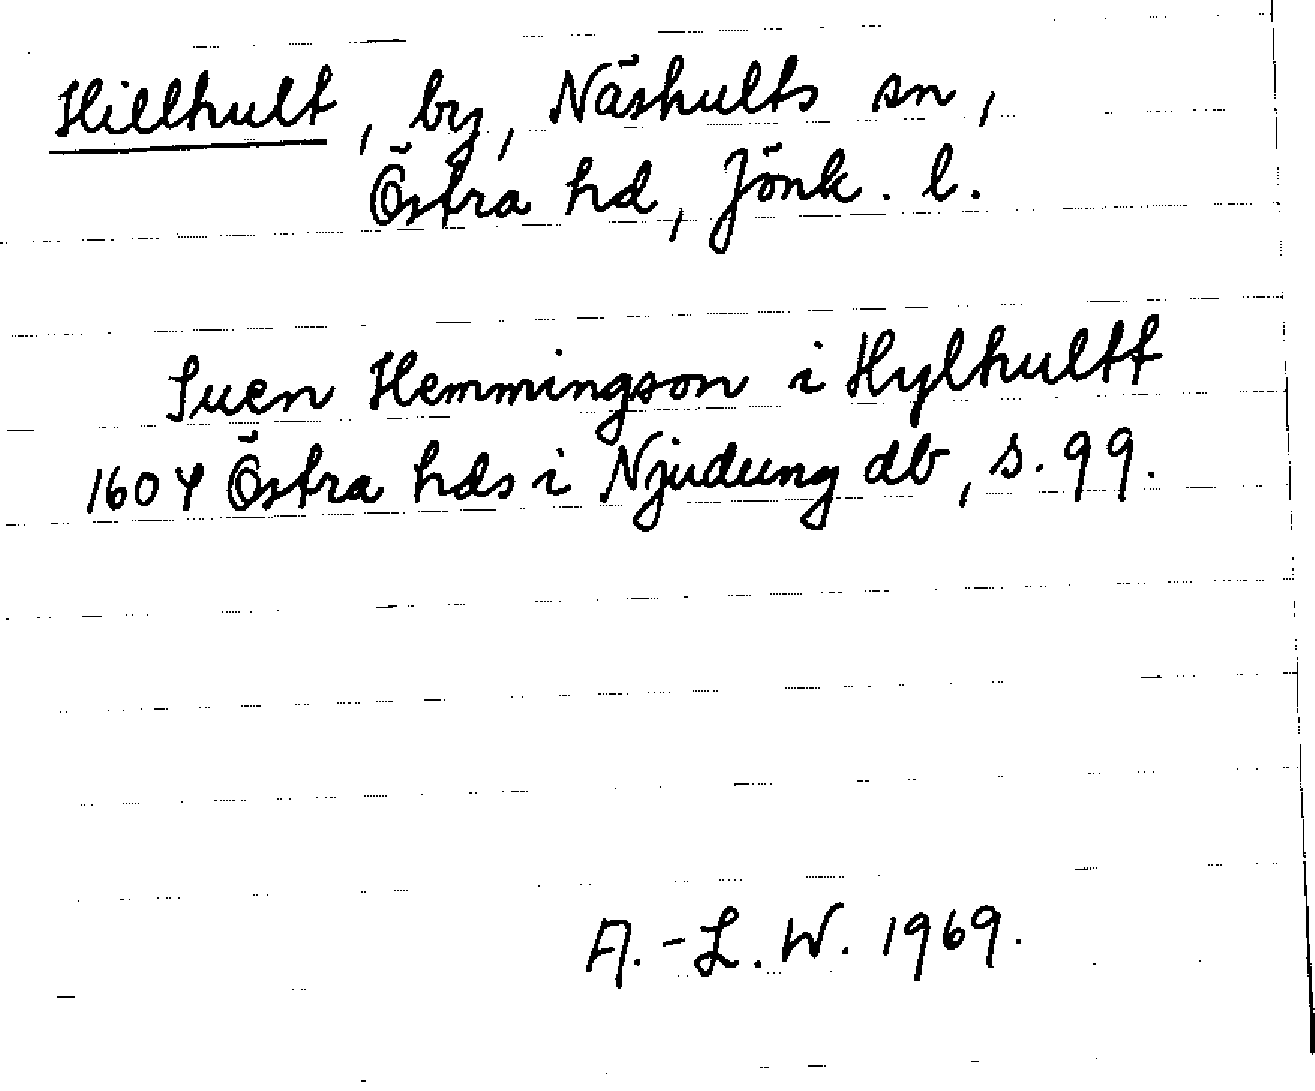 Hillhult, by, Näshults sn,
Östra hd, Jönk. l.
Suen Hemmingson i Hylhultt
1604 Östra hds i Njudung db, s. 99.
A.-L. W. 1969.